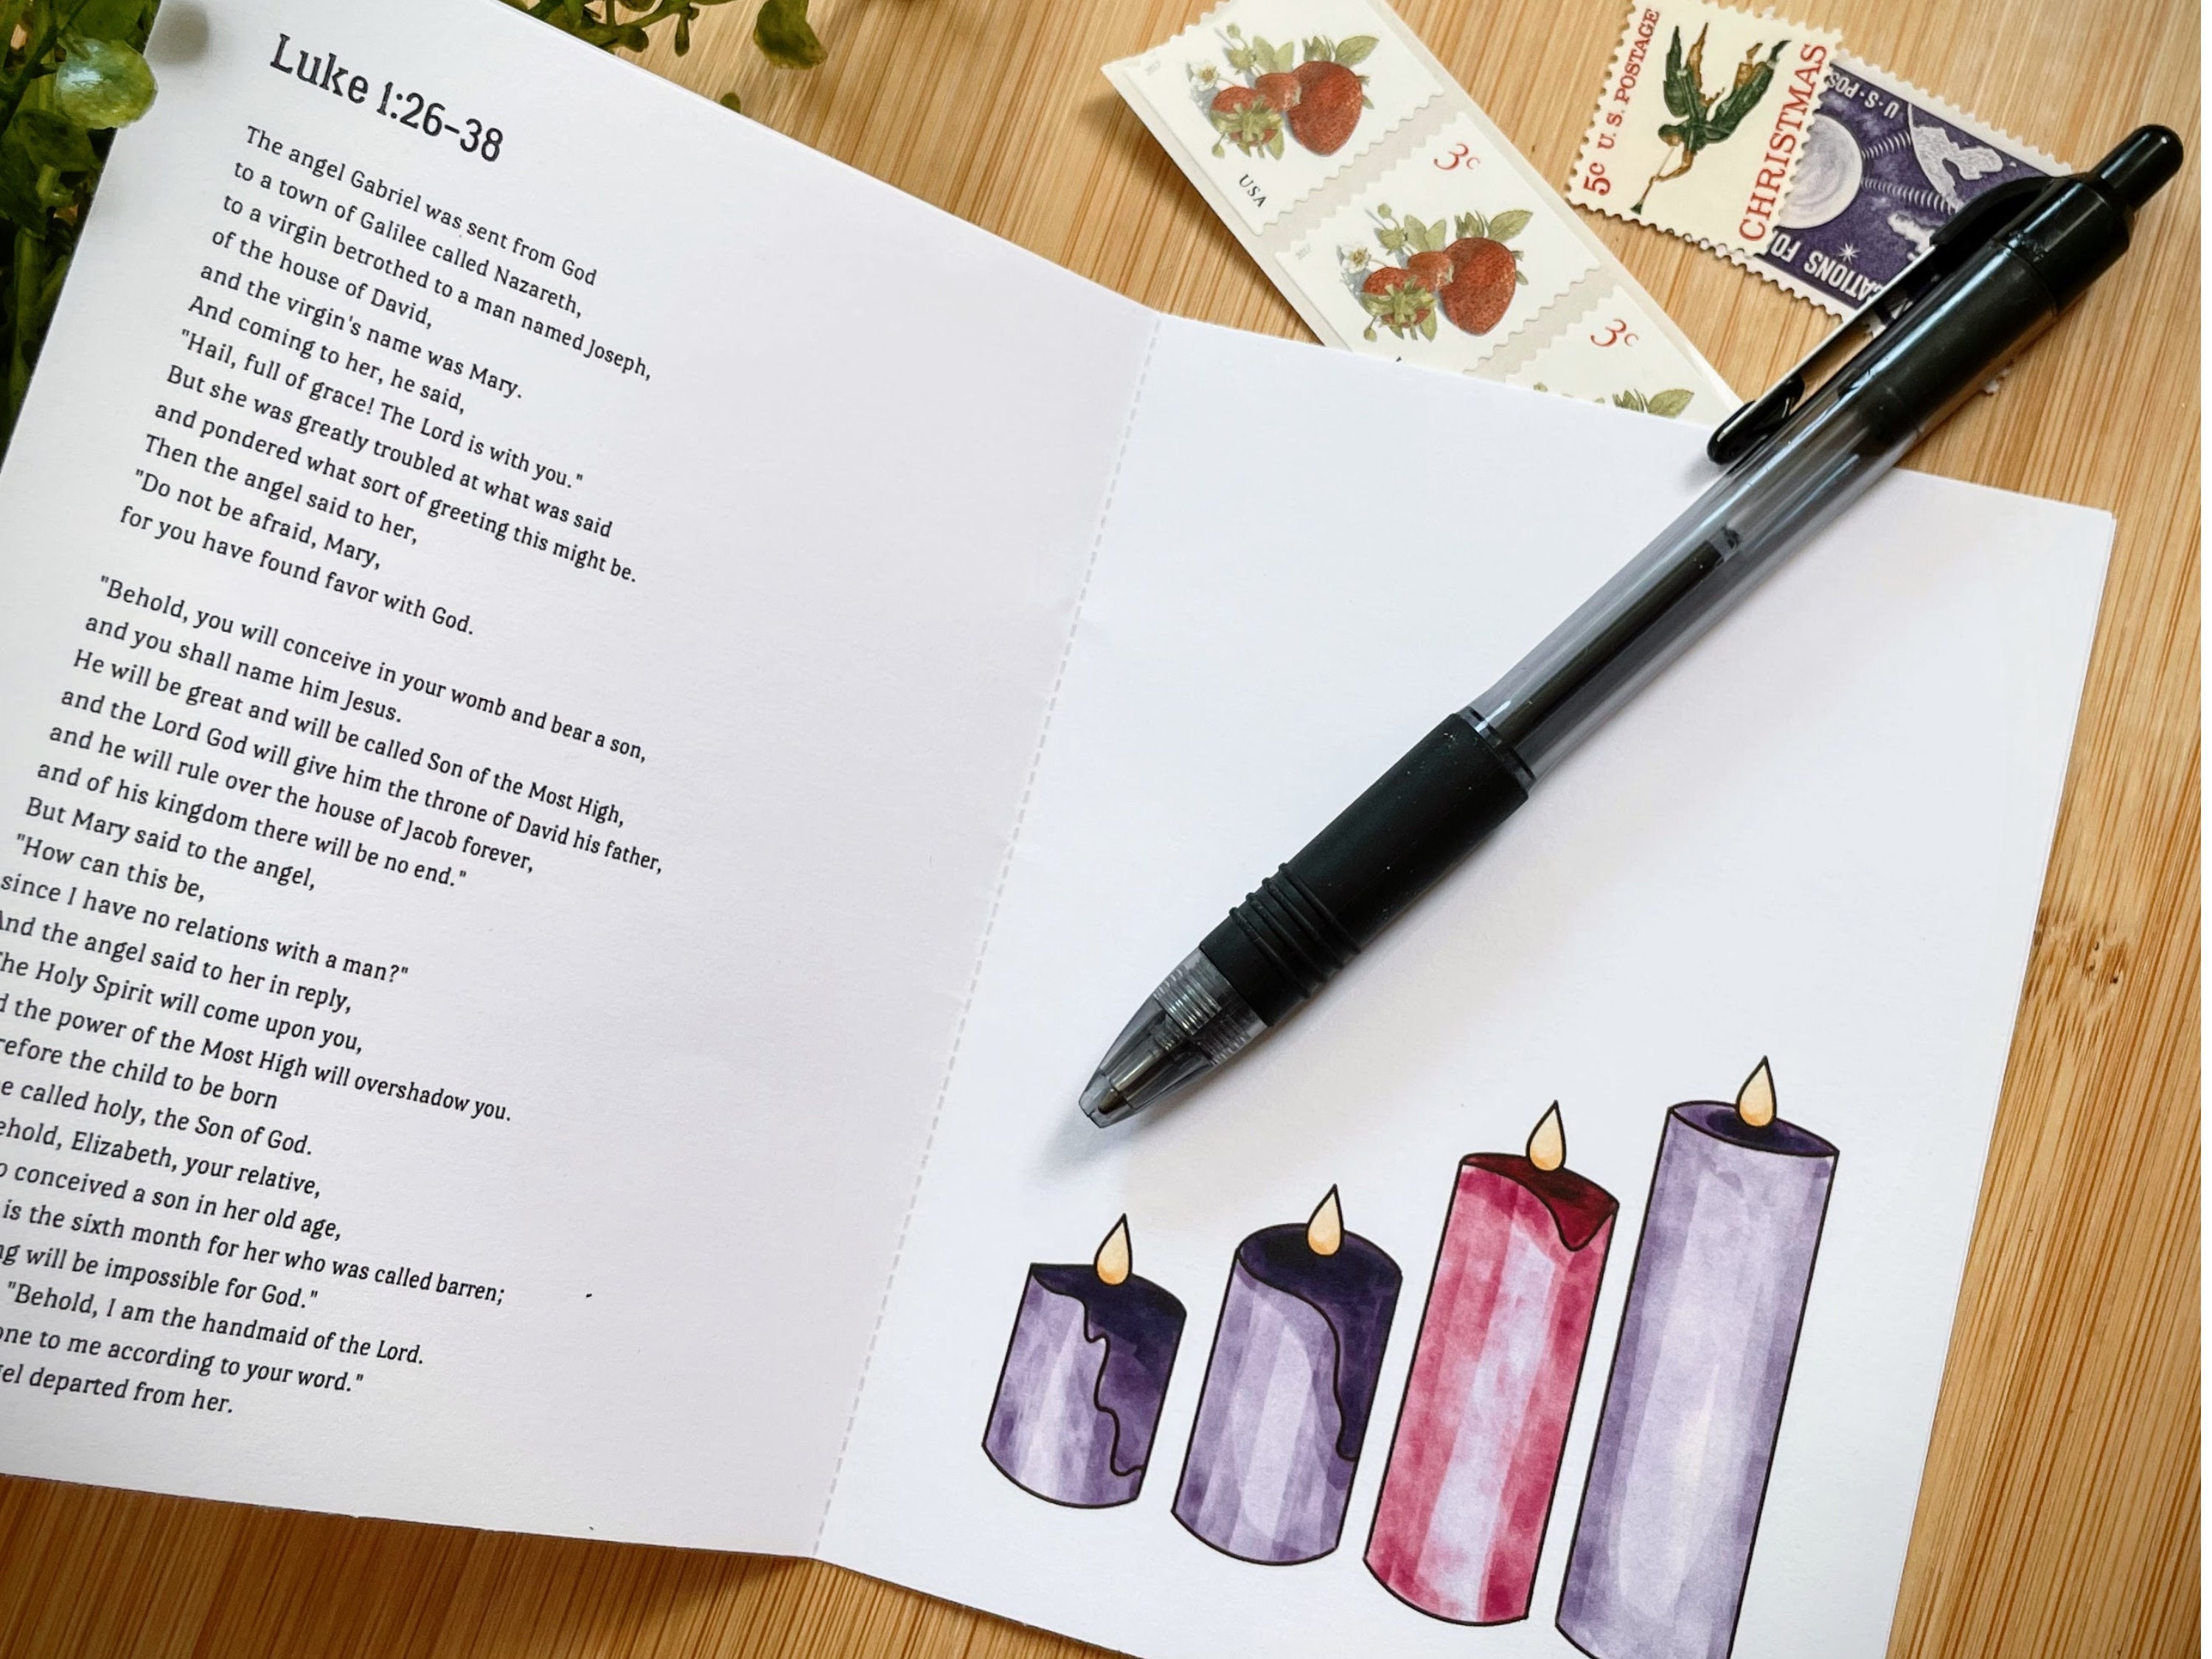 Luke 1:26-38
The angel Gabriel was sent from God
to a town of Galilee called Nazareth,
to a virgin betrothed to a man named Joseph,
of the house of David,
and the virgin's name was Mary.
And coming to her, he said,
"Hail, full of grace! The Lord is with you."
But she was greatly troubled at what was said
and pondered what sort of greeting this might be.
Then the angel said to her,
"Do not be afraid, Mary,
for you have found favor with God.
"Behold, you will conceive in your womb and bear a son,
and you shall name him Jesus.
He will be great and will be called Son of the Most High,
and the Lord God will give him the throne of David his father,
and he will rule over the house of Jacob forever,
and of his kingdom there will be no end."
But Mary said to the angel,
"How can this be,
since I have no relations with a man?"
And the angel said to her in reply,
The Holy Spirit will come upon you,
the power of the Most High will overshadow you.
the child to be born
called holy, the Son of God.
Elizabeth, your relative,
conceived a son in her old age,
is the sixth month for her who was called barren;
will be impossible for God."
"Behold, I am the handmaid of the Lord.
to me according to your word."
departed from her.
USA
3c
3c
5c U.S. POSTAGE
CHRISTMAS